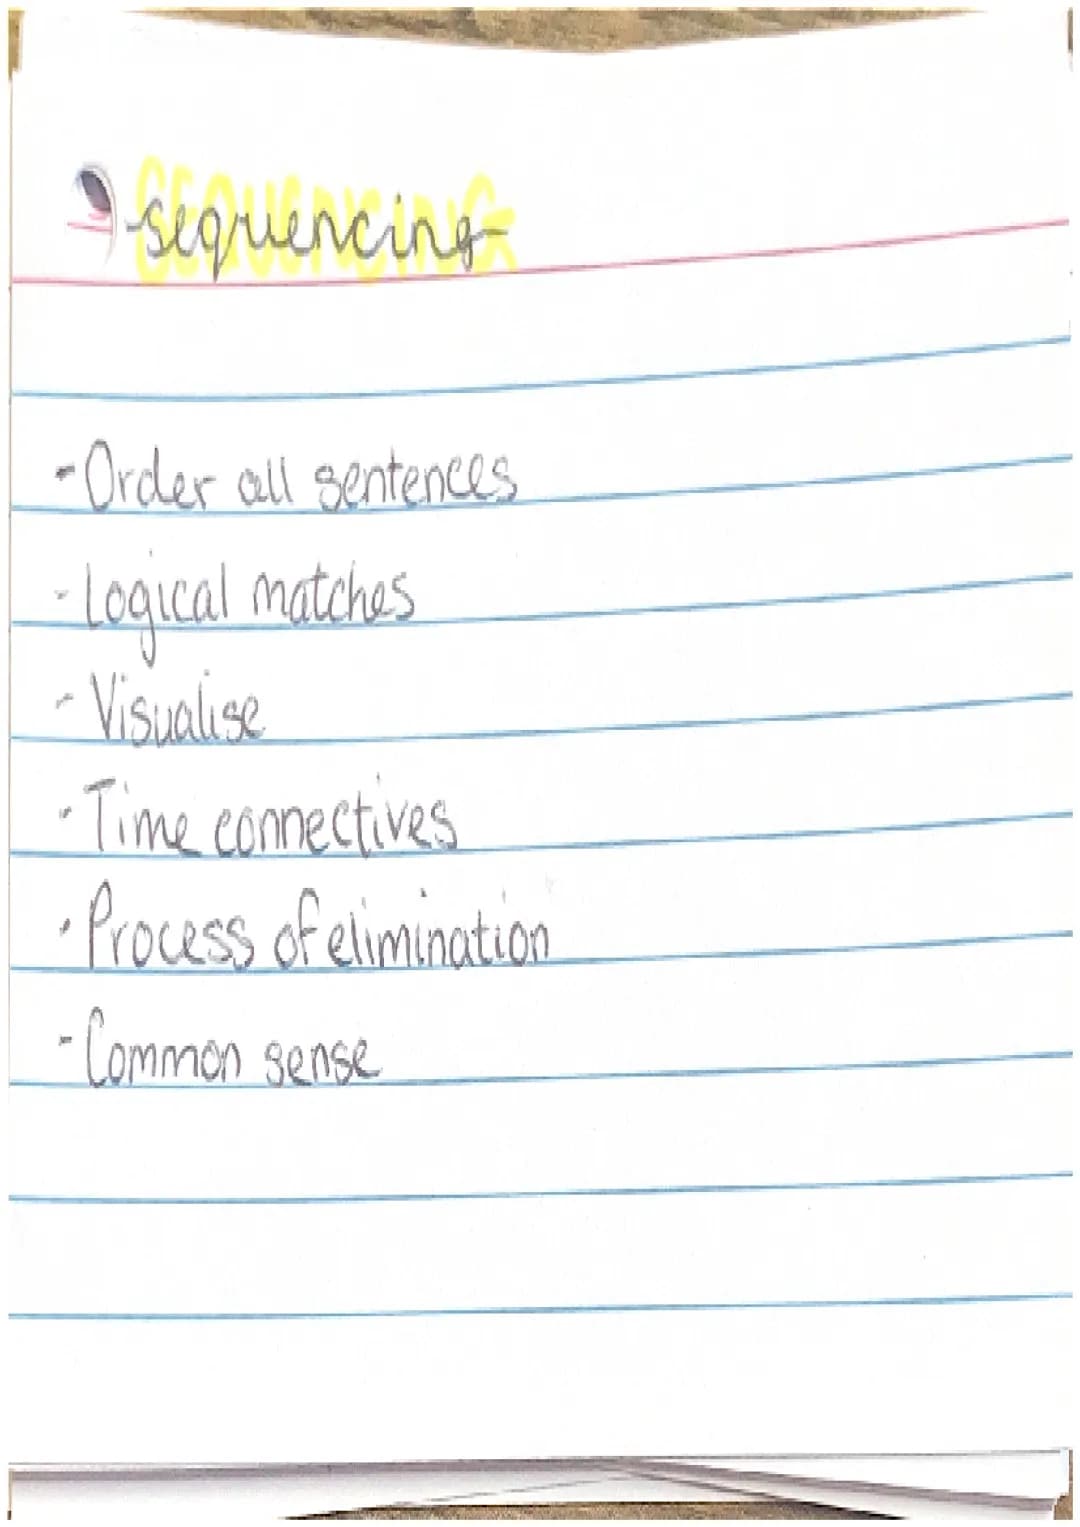 -sequencing-
SEQUENCING
-Order all sentences
-Logical matches
-Visualise
-Time connectives
-Process of elimination
-Common sense